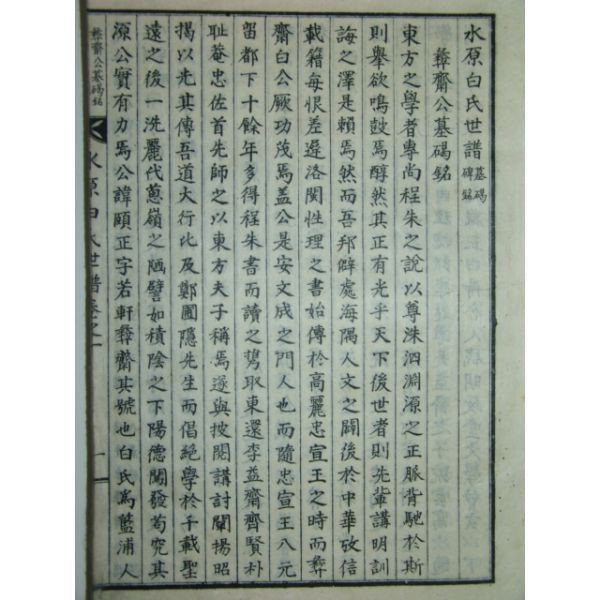 水原白氏世譜 墓碣碑銘
彛齋公墓碣銘
東方之學者專尚程朱之說以尊洙泗淵源之正脈背馳於斯
則擧欲鳴鼓焉醇然其正有光乎天下後世者則先輩講明訓
誨之澤是賴焉然而吾邦僻處海隅人文之闢後於中華攷信
載籍每恨差遲洛閩性理之書始傳於高麗忠宣王之時而彛
齋白公厥功茂焉盖公是安文成之門人也而隨忠宣王入元
留都下十餘年多得程朱書而讀之曁取東還李益齋齊賢朴
耻菴忠佐首先師之以東方夫子稱焉遂與披閱講討闡揚昭
揭以光其傳吾道大行比及鄭圃隱先生而倡絕學於千載聖
遠之後一洗麗代蔥嶺之陋譬如積陰之下陽德闓發苟究其
源公實有力焉公諱頤正字若軒彛齋其號也白氏爲藍浦人
彛齋公墓碣銘
水原白氏世譜卷之一
一